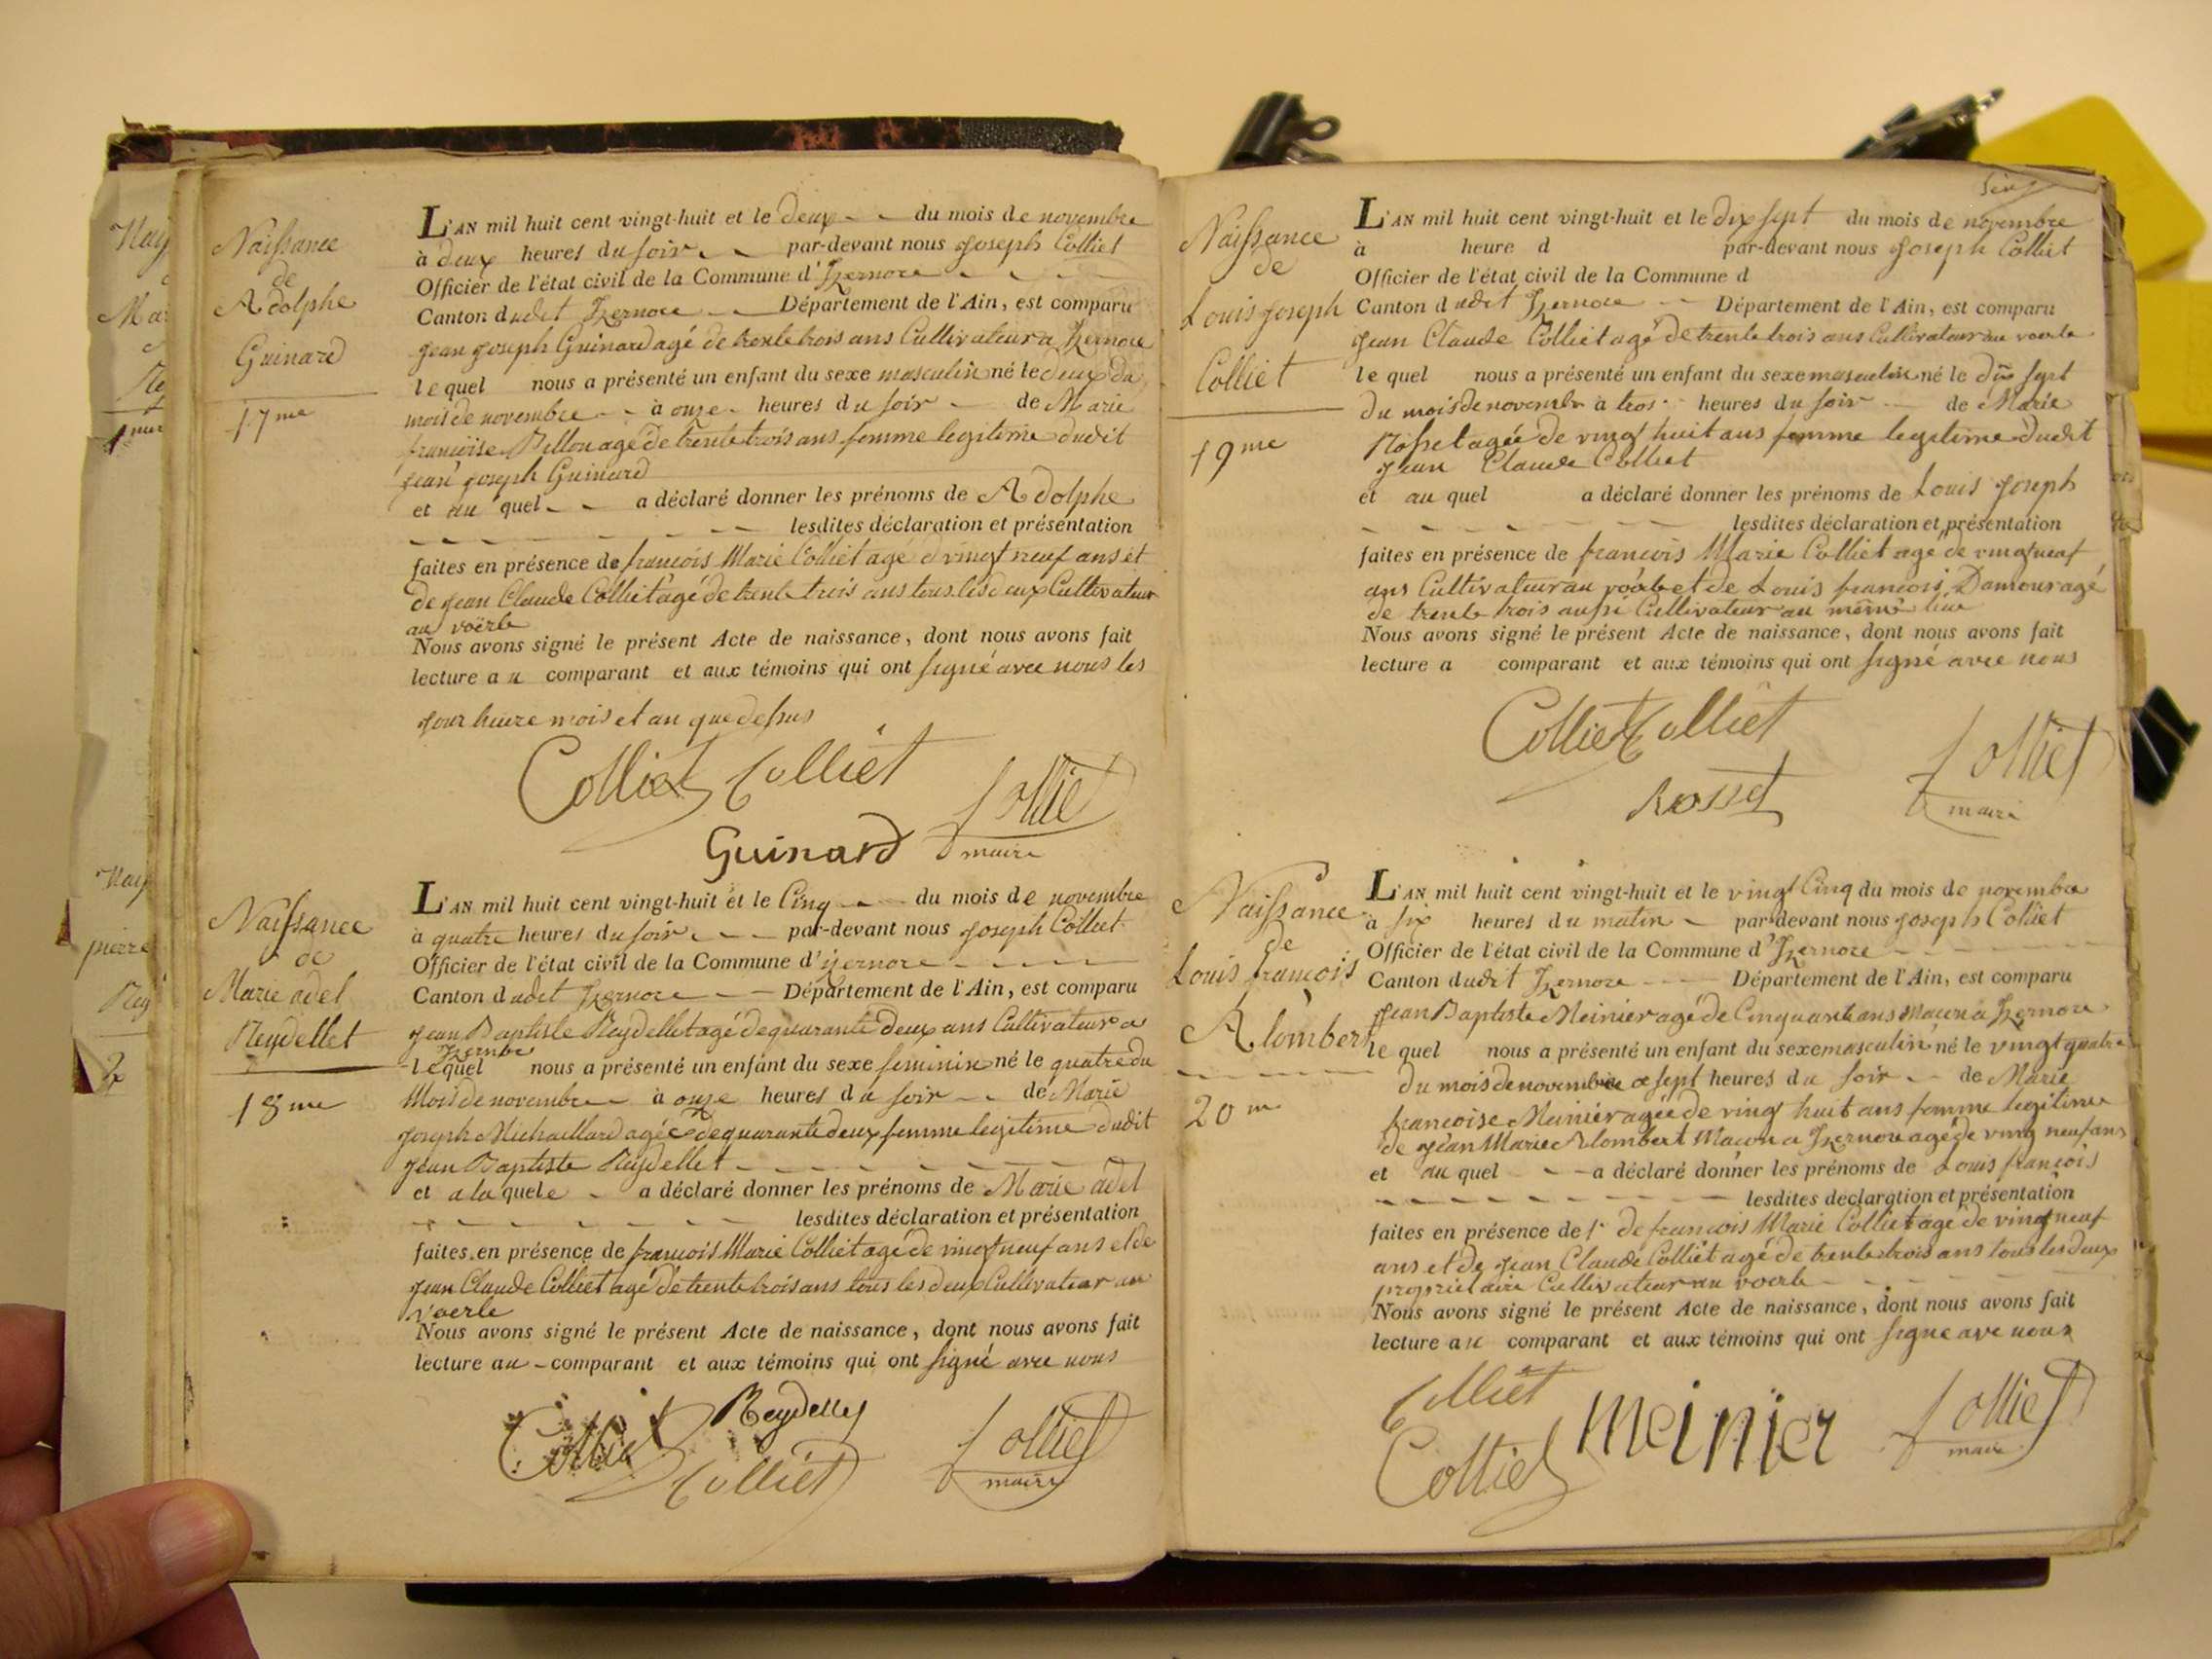 Naissance
de
Adolphe
Guinard
17me
L'AN mil huit cent vingt-huit et le deux du mois de novembre
à deux heures du soir par-devant nous Joseph Colliet
Officier de l'état civil de la Commune d'Izernore
Canton dudit Izernore Département de l'Ain, est comparu
Jean Joseph Guinard agé de trente trois ans Cultivateur a Izernore
lequel nous a présenté un enfant du sexe masculin né le deux du
mois de novembre à onze heures du soir de Marie
francoise Billon agé de trente trois ans femme legitime dudit
jean joseph Guinard
et au quel a déclaré donner les prénoms de Adolphe
lesdites déclaration et présentation
faites en présence de francois Marie Colliet agé d vingt neuf ans et
de Jean Claude Colliet agé de trente trois ans tous les deux Cultivateur
au voërle
Nous avons signé le présent Acte de naissance, dont nous avons fait
lecture au comparant et aux témoins qui ont signé avec nous les
jour heure mois et an que dessus
Colliet Colliet
Guinard
Colliet
maire
Naissance
de
Marie adel
Reydellet
18me
L'AN mil huit cent vingt-huit et le Cinq du mois de novembre
à quatre heures du soir par-devant nous Joseph Colliet
Officier de l'état civil de la Commune d'yzernore
Canton dudit Izernore Département de l'Ain, est comparu
Jean Baptiste Reydellet agé de quarante deux ans Cultivateur a
lequel nous a présenté un enfant du sexe feminin né le quatre du
Mois de novembre à onze heures du soir de Marie
Joseph Michaillard agée de quarante deux femme legitime dudit
Jean Baptiste Reydellet
et a la quele a déclaré donner les prénoms de Marie adel
lesdites déclaration et présentation
faites en présence de francois Marie Colliet agé de vingt neuf ans et de
Jean Claude Colliet agé de trente trois ans tous les deux Cultivateur au
voerle
Nous avons signé le présent Acte de naissance, dont nous avons fait
lecture au comparant et aux témoins qui ont signé avec nous
Colliet
Reydellet
Colliet
Colliet
maire
Naissance
de
Louis joseph
Colliet
19me
L'AN mil huit cent vingt-huit et le dix sept du mois de novembre
à heure d par-devant nous Joseph Colliet
Officier de l'état civil de la Commune d
Canton dudit Izernore Département de l'Ain, est comparu
Jean Claude Colliet agé de trente trois ans Cultivateur au voerle
lequel nous a présenté un enfant du sexe masculin né le dix sept
du mois de novembr à trois heures du soir de Marie
Rosset agée de vingt huit ans femme legitime dudit
Jean Claude Colliet
et au quel a déclaré donner les prénoms de Louis Joseph
lesdites déclaration et présentation
faites en présence de francois Marie Colliet agé de vingt neuf
ans Cultivateur au voërle et de Louis francois Damour agé
de trente trois aussi Cultivateur au même lieu
Nous avons signé le présent Acte de naissance, dont nous avons fait
lecture a comparant et aux témoins qui ont signé avec nous
Colliet Colliet
Rosset
Colliet
maire
Naissance
de
Louis francois
Alombert
20me
L'AN mil huit cent vingt-huit et le vingt Cinq du mois de novembre
à six heures du matin par-devant nous Joseph Colliet
Officier de l'état civil de la Commune d'Izernore
Canton dudit Izernore Département de l'Ain, est comparu
Jean Baptiste Meinier agé de Cinquante ans Macon a Izernore
le quel nous a présenté un enfant du sexe masculin né le vingt quatre
du mois de novembre a sept heures du soir de Marie
francoise Meinier agée de vingt huit ans femme legitime
de Jean Marie Alombert Macon a Izernore agé de ving neuf ans
et au quel a déclaré donner les prénoms de Louis francois
lesdites declaration et présentation
faites en présence de de francois Marie Colliet agé de vingt neuf
ans et de Jean Claude Colliet agé de trente trois ans tous les deux
proprietaire Cultivateur au voerle
Nous avons signé le présent Acte de naissance, dont nous avons fait
lecture au comparant et aux témoins qui ont signé ave nous
Colliet
Colliet
Meinier
Colliet
maire